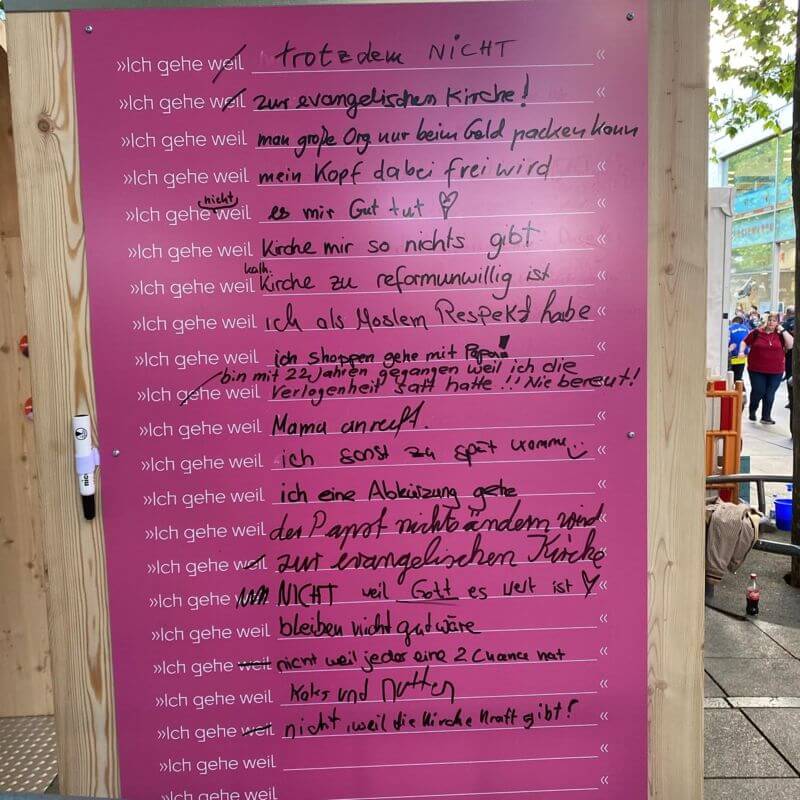 »Ich gehe weil trotzdem NICHT «
»Ich gehe weil zur evangelischen Kirche! «
»Ich gehe weil man große Org nur beim Geld packen kann
»Ich gehe weil mein Kopf dabei frei wird «
»Ich gehe nicht weil es mir Gut tut ♡ «
»Ich gehe weil Kirche mir so nichts gibt «
»Ich gehe weil kath. Kirche zu reformunwillig ist «
»Ich gehe weil ich als Moslem Respekt habe «
»Ich gehe weil ich shoppen gehe mit Papa! «
bin mit 22 Jahren gegangen weil ich die
»Ich gehe weil Verlogenheit satt hatte !!! Nie bereut!
»Ich gehe weil Mama anruft. «
»Ich gehe weil ich sonst zu spät komme «
»Ich gehe weil ich eine Abkürzung gehe «
»Ich gehe weil der Papst nichts ändern wird
»Ich gehe weil zur evangelischen Kirche «
»Ich gehe NICHT weil Gott es wert ist ♡ «
»Ich gehe weil bleiben nicht gut wäre «
»Ich gehe weil nicht weil jeder eine 2 Chance hat «
»Ich gehe weil Koks und Nutten «
»Ich gehe weil nicht, weil die Kirche Kraft gibt! «
»Ich gehe weil «
»Ich gehe weil «